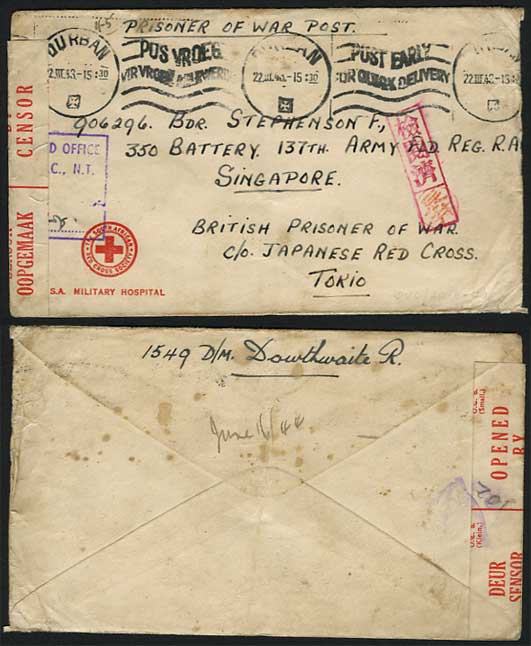 PRISONER OF WAR POST.
DURBAN
22.III.43.-15:30
POS VROEG
VIR VROEË AFLEWERING
22.III.43.-15:30
POST EARLY
FOR QUICK DELIVERY
22.III.43.-15:30
906296. BDR. STEPHENSON F.,
350 BATTERY. 137TH. ARMY FLD REG. R.A
SINGAPORE.
BRITISH PRISONER OF WAR.
C/O. JAPANESE RED CROSS.
TOKIO
CENSOR
OOPGEMAAK
D OFFICE
C., N.T.
検閲済
THE SOUTH AFRICAN
RED CROSS SOCIETY
S.A. MILITARY HOSPITAL
1549 D/M. Dowthwaite R.
June 16/44
OPENED
BY
(Small.)
(Klein.)
DEUR
SENSOR